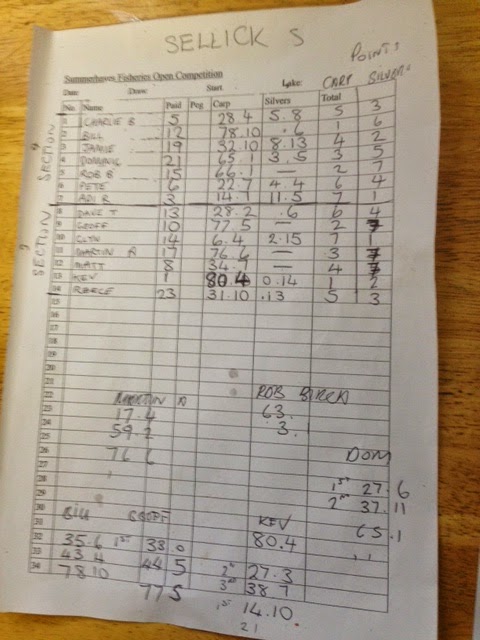 SELLICK S
POINTS
Summerhayes Fisheries Open Competition
Date: Draw: Start: Lake: CARP SILVERS
No. Name Paid Peg Carp Silvers Total
SECTION
1 CHARLIE B 5 28.4 5.8 5 3
2 BILL 12 78.10 .6 1 6
3 JAMIE 19 32.10 8.13 4 2
4 DOMINIC 21 65.1 3.5 3 5
5 ROB B 15 66.1 — 2 7
6 PETE 6 22.7 4.4 6 4
7 ADI R 3 14.7 11.5 7 1
SECTION
8 DAVE T 13 28.2 .6 6 4
9 GEOFF 10 77.5 — 2 7
10 14 6.4 2.15 7 1
11 MARTIN A 17 76.6 — 3 7
12 MATT 8 34. — 4 7
13 KEV 1 80.4 0.14 1 2
14 REECE 23 31.10 .13 5 3
15
16
17
18
19
20
21
22 MARTIN A ROB BIRCH
23 17.4 63.
24 59.2 3.
25
26 76 6 DOM
27
28 1st 27.6
29 2nd 37.11
30 Bill GEOFF KEV 65.1
31
32 35.6 1st 38.0 80.4
33 43.4 44 5 2nd 27.3
34 78 10 3rd 38.7
77 5 1st 14.10.
21